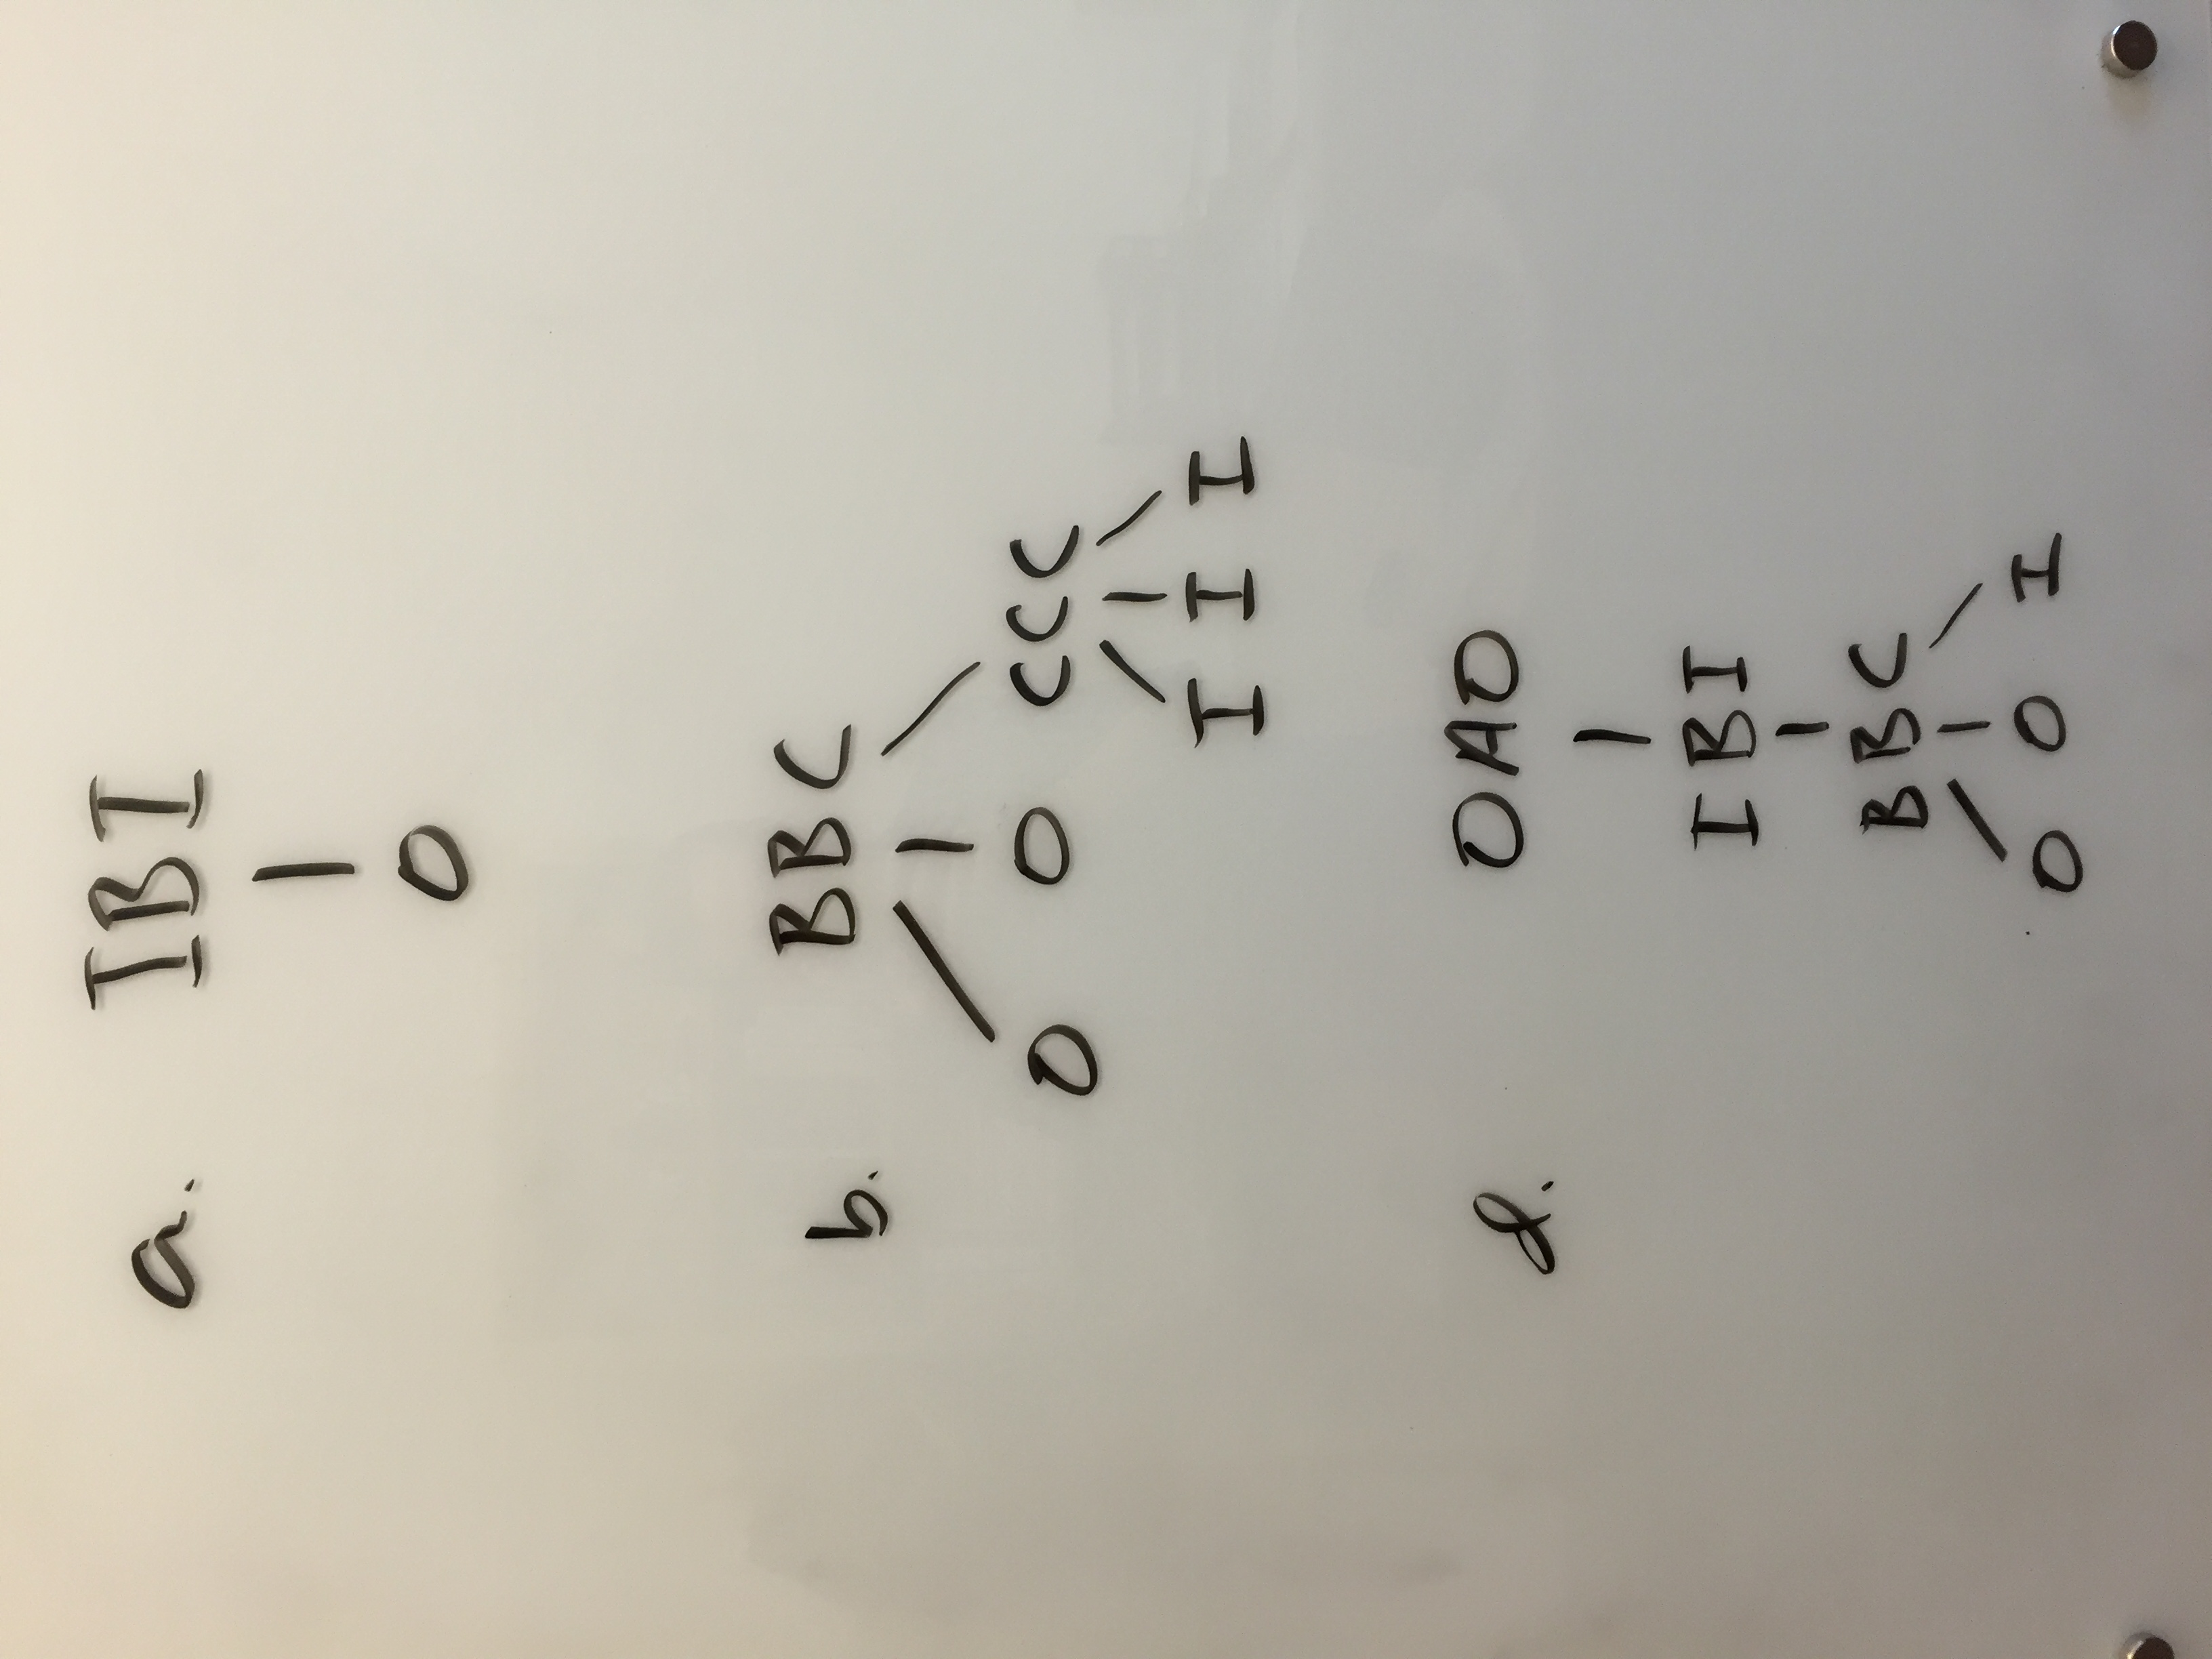 a. IBI
O
b. BBC
O O CCC
I I I
d. OAO
IBI
BBC
O O I